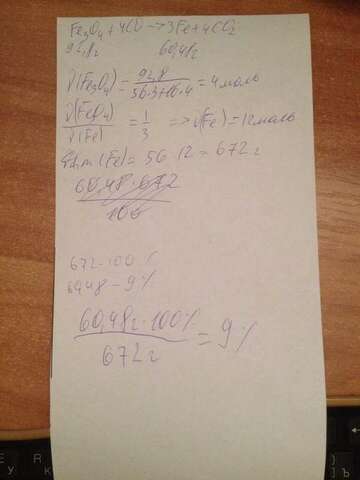 Fe₃O₄ + 4CO → 3Fe + 4CO₂
92,8г 60,48г
ν(Fe₃O₄) = 92,8 / 56·3+16·4 = 4 моль
ν(Fe₃O₄) / ν(Fe) = 1/3 => ν(Fe) = 12 моль
m(Fe) = 56 · 12 = 672 г
60,48 · 672 / 100
672 - 100 %
60,48 - 9 %
60,48г · 100% / 672г = 9 %